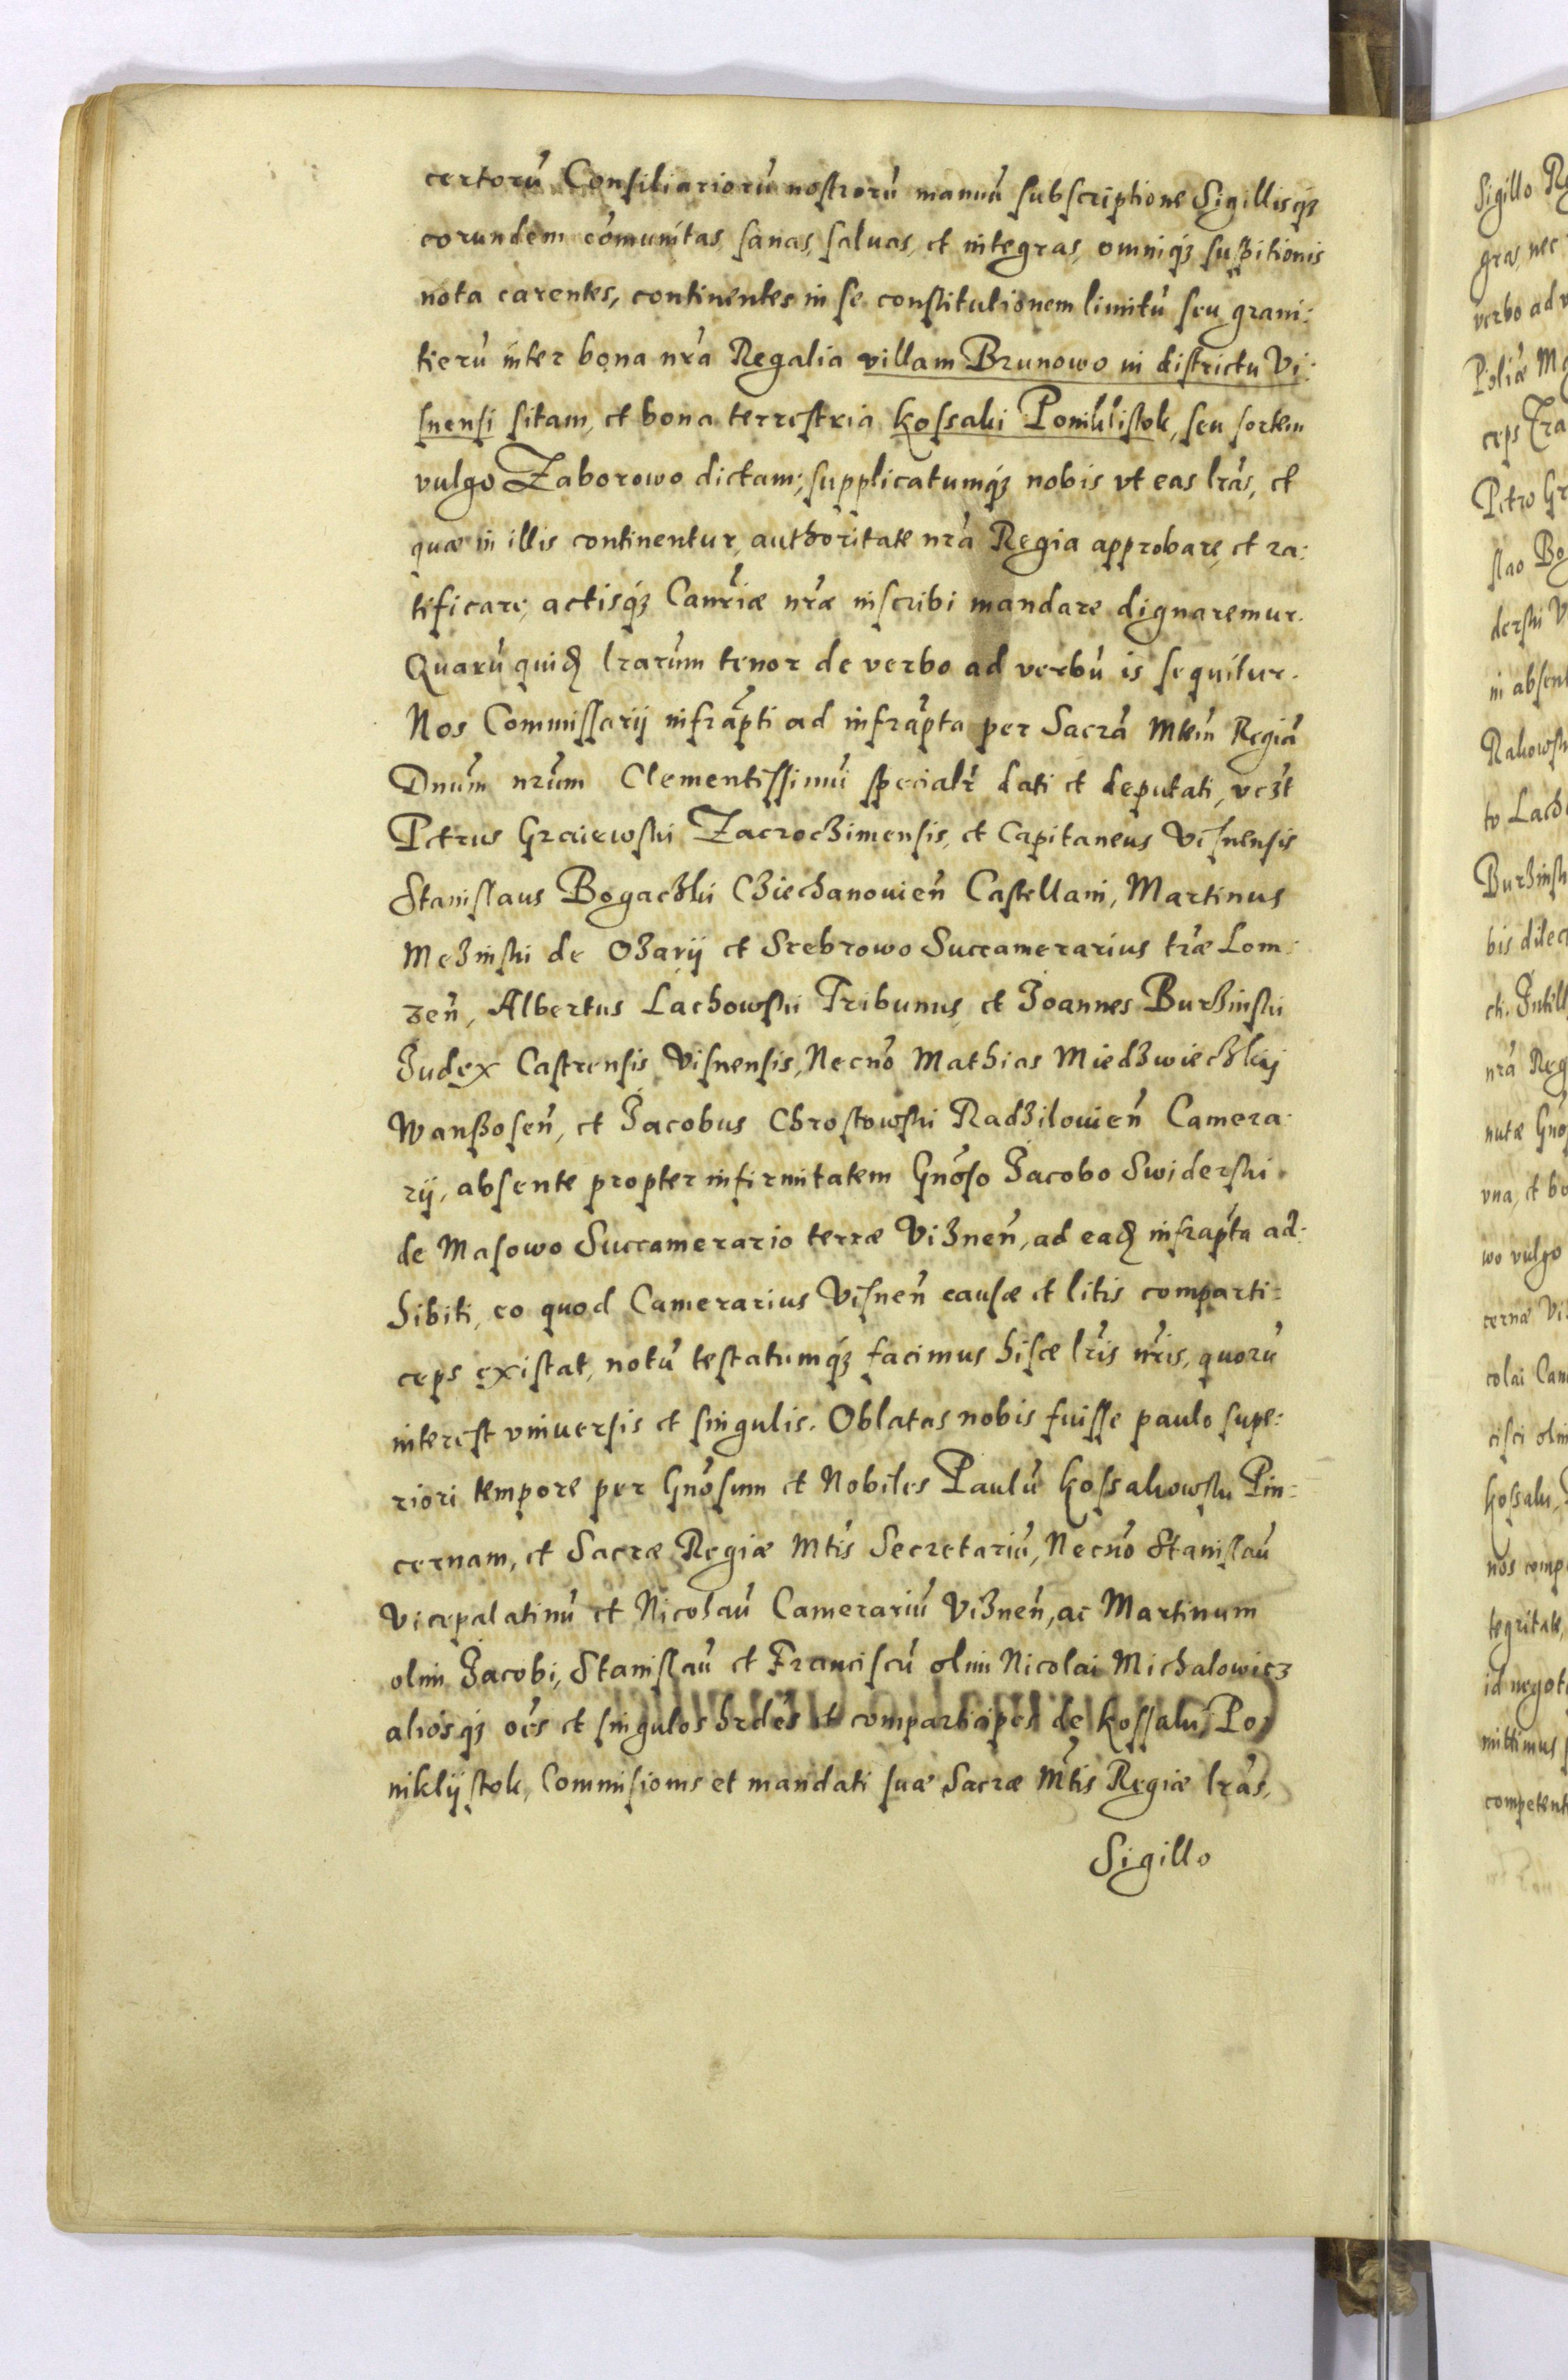 certorū Consiliariorū nostrorū manuū subscriptione Sigillisq́ꝫ
eorundem cōmunitas, sanas, saluas, et integras, omniq́ꝫ suspitionis
nota carentes, continentes in se constitutionem limitū seu grani:
tierū inter bona nr̄a Regalia villam Brunowo in districtu Vi:
snensi sitam, et bona terrestria Kossaki Ponikklistok, seu sortem
vulgo Zaborowo dictam; supplicatumq́ꝫ nobis vt eas lr̄as, et
quæ in illis continentur, authoritate nr̄a Regia approbare, et ra:
tificare, actisq́ꝫ Canr̄iæ nr̄æ inscribi mandare dignaremur.
Quarū quidꝫ lr̄arum tenor de verbo ad verbū is sequitur.
Nos Commissarij infrāpti ad infrāpta per Sacrā Mtem̄ Regiā
Dnūm nr̄um Clementissimū specialr̄ dati et deputati, vcꝫt
Petrus Graiewski Zacroczimensis, et Capitaneus Visnensis
Stanislaus Bogaczki Cziechanouien̄ Castellani, Martinus
Mezinski de Ozarij et Srebrowo Succamerarius tr̄æ Lom:
zen̄, Albertus Lachowski Tribunus, et Joannes Burzinski
Judex Castrensis Visnensis, Necnō Mathias Miedzwieczkij
Wansosen̄, et Jacobus Chrostowski Radzilouien̄ Camera:
rij, absente propter infirmitatem Gnōso Jacobo Swiderski
de Masowo Succamerario terræ Viznen̄, ad eadꝫ infrapta ad:
hibiti, eo quod Camerarius Visnen̄ causæ et litis comparti:
ceps existat, notū testatumq́ꝫ facimus hisce lr̄is nr̄is, quorū
interest vniuersis et singulis. Oblatas nobis fuisse paulo supe:
riori tempore per Gnōsum et Nobiles Paulū Kossakowski Pin:
cernam, et Sacræ Regiæ Mtis̄ Secretariū, Necnō Stanislaū
Vicepalatinū et Nicolaū Camerariū Viznen̄, ac Martinum
olim Jacobi, Stanislaū et Franciscū olim Nicolai Michalowicz
aliosq́ꝫ oēs et singulos hrdēs et comparticipes de Kossaki Po
niklij stok, Commisionis et mandati suæ Sacræ Mtis̄ Regiæ lr̄as,
Sigillo